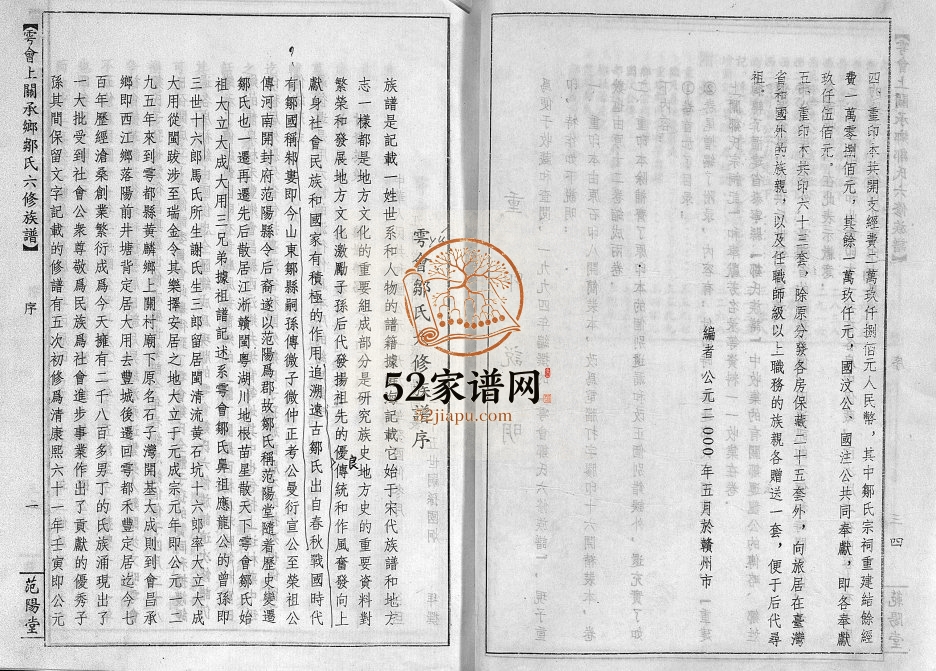 四、重印本共開支經費二萬玖仟捌佰元人民幣，其中鄒氏宗祠重建結餘經
費一萬零捌佰元，其餘一萬玖仟元，國汶公、國注公共同奉獻，即各奉獻
玖仟伍佰元。
五、重印本共印六十三套，除原分發各房保藏二十五套外，向旅居在臺灣
省和國外的族親，以及任職師級以上職務的族親各贈送一套，便于后代尋
祖。
編者 公元二1000年五月於贛州市
三四
【雩會上關承鄉鄒氏六修族譜】
序
一
范陽堂
雩會鄒氏六修族譜序
yú
族譜是記載一姓世系和人物的譜籍據
記載它始于宋代族譜和地方
志一樣都是地方文化的重要組成部分是研究族史地方史的重要資料對
繁榮和發展地方文化激勵子孫后代發揚祖先的優傳統和作風奮發向上
良
獻身社會民族和國家有積極的作用追溯遠古鄒氏出自春秋戰國時代
有鄒國稱邾婁即今山東鄒縣嗣孫傳微子微仲正考公曼衍宣公至榮祖公
傳河南開封府范陽縣令后裔遂以范陽爲郡故鄒氏稱范陽堂隨着歷史變遷
鄒氏也一遷再遷先后散居江浙贛閩粵湖川地根苗星散天下雩會鄒氏始
祖大立大成大用三兄弟據祖譜記述系雩會鄒氏鼻祖應龍公的曾孫即
三世十六郎馬氏所生謝氏生三郎留居閩清流黄石坑十六郎率大立大成
大用從閩跋涉至瑞金令其樂擇安居之地大立于元成宗元年即公元一二
九五年來到雩都縣黄麟鄉上關村廟下原名石子灣開基大成則到會昌承
鄉即西江鄉落陽前井塘背定居大用去豐城後遷回雩都禾豐定居迄今七
百年歷經滄桑創業繁衍成爲今天擁有二千八百多男丁的氏族涌現出了
一大批受到社會公衆尊敬爲民族爲社會進步事業作出了貢獻的優秀子
孫其間保留文字記載的修譜有五次初修爲清康熙六十一年壬寅即公元
52家谱网
52jiapu.com